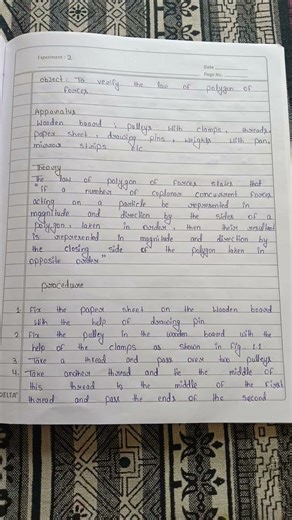 Experiment : 2
Date
Page No.
object : To verify the law of polygon of
forces.
Apparatus
Wooden board, pulleys with clamps, threads,
paper sheet, drawing pins, weights with pan,
mirror strips etc.
Theory
The law of polygon of forces states that
"If a number of coplanar concurrent forces
acting on a particle be represented in
magnitude and direction by the sides of a
polygon, taken in order, then their resultant
is represented in magnitude and direction by
the closing side of the polygon taken in
opposite order"
procedure
1. Fix the paper sheet on the wooden board
with the help of drawing pin
2. Fix the pulley in the wooden board with the
help of the clamps as shown in fig 1.1
3. Take a thread and pass over two pulleys
4. Take another thread and tie the middle of
this thread to the middle of the first
thread and pass the ends of the second
DELTA